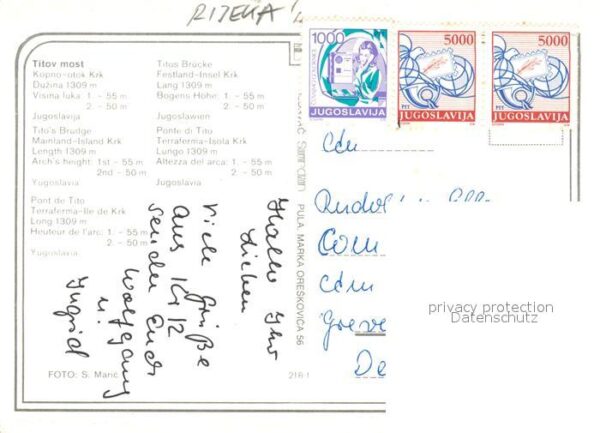 RIJEKA
1000
JUGOSLAVIJA
5000
PTT
JUGOSLAVIJA
5000
PTT
JUGOSLAVIJA
Titov most
Kopno-otok Krk
Dužina 1309 m
Visina luka: 1. - 55 m
2. - 50 m
Jugoslavija
Titos Brücke
Festland-Insel Krk
Lang 1309 m
Bogens Höhe: 1. - 55 m
2. - 50 m
Jugoslawien
Tito's Brudge
Mainland-Island Krk
Length 1309 m
Arch's height: 1st - 55 m
2nd - 50 m
Yugoslavia
Ponte di Tito
Terraferma-Isola Krk
Lungo 1309 m
Altezza del arca: 1. - 55 m
2. - 50 m
Jugoslavia
Pont de Tito
Terraferma-Ile de Krk
Long 1309 m
Heuteur de l'arc: 1. - 55 m
2. - 50 m
Yugoslavia
FOTO: S. Marić
216-1
PULA, MARKA OREŠKOVIĆA 56
Hallo Ihr
Lieben
Viele Grüße
aus Krk
senden Euch
Wolfgang
u
Ingrid
Rudolf
Greve
De
privacy protection
Datenschutz